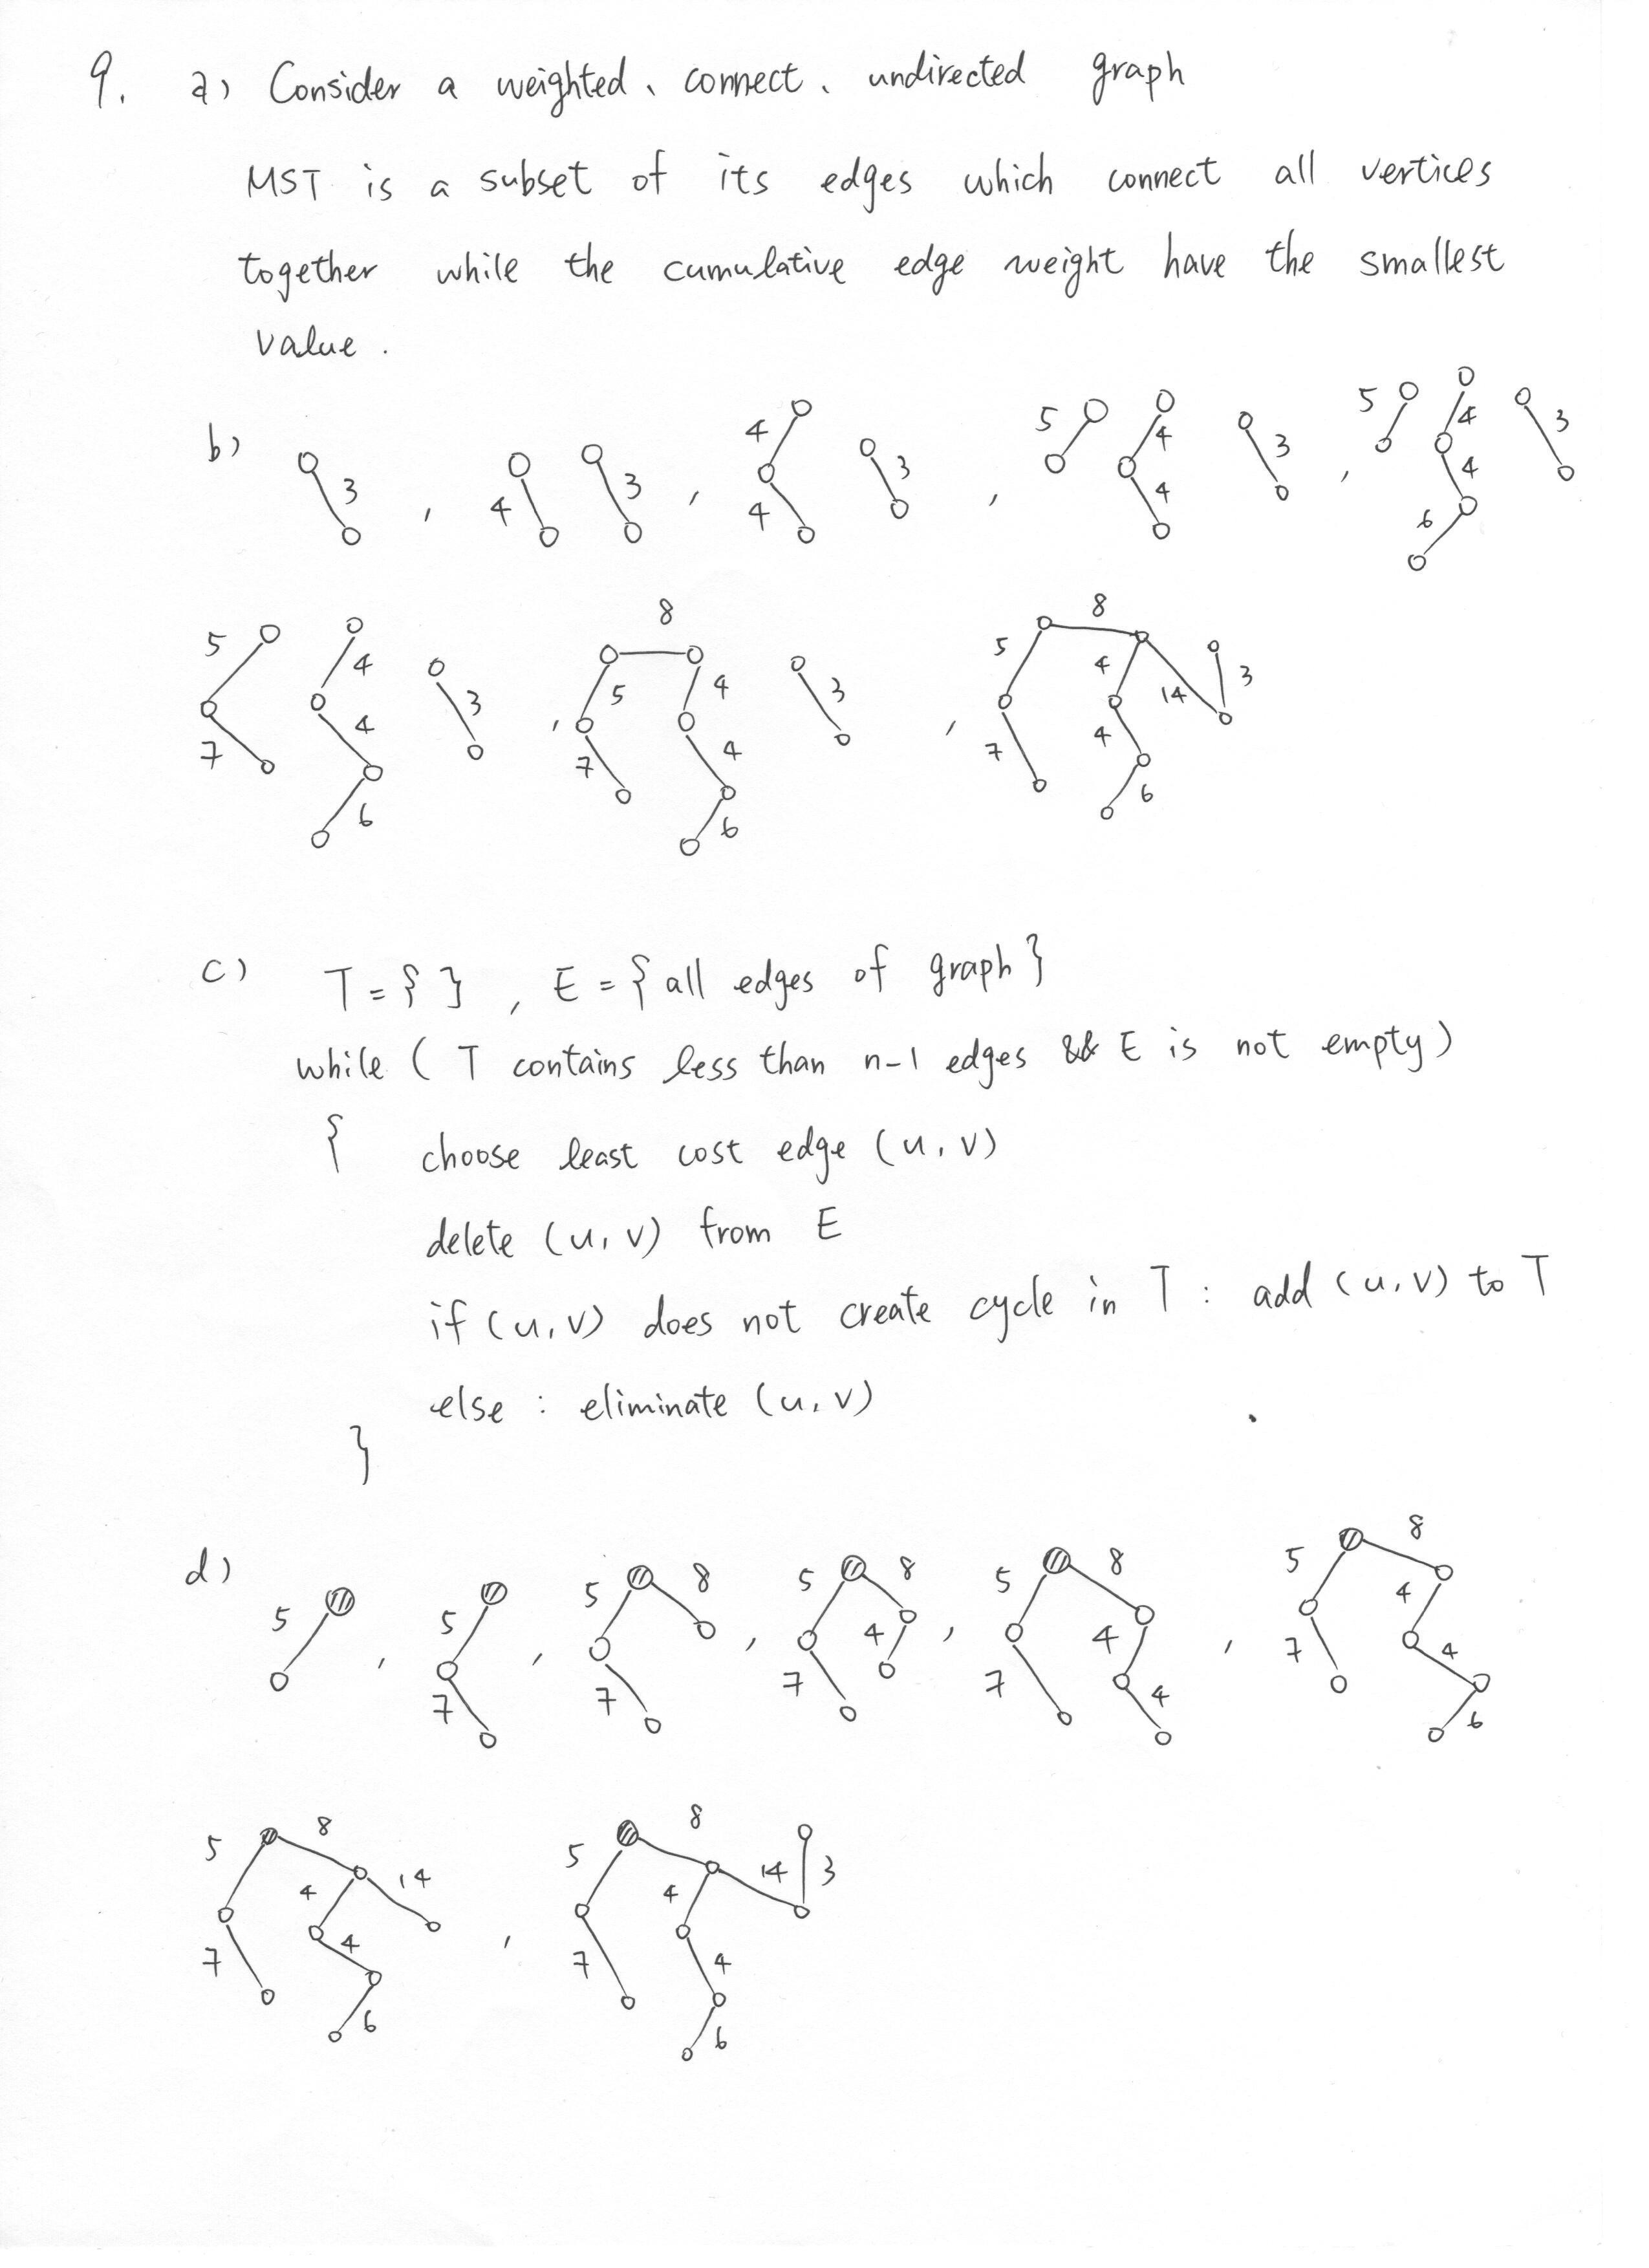 9. a) Consider a weighted、connect、undirected graph
MST is a subset of its edges which connect all vertices
together while the cumulative edge weight have the smallest
value.
b) 3 , 4 3 , 4 4 3 , 5 4 4 3 , 5 4 4 6 3
5 7 4 4 6 3 , 8 5 7 4 4 6 3 , 8 5 7 4 4 6 14 3
c) T = { } , E = { all edges of graph }
while ( T contains less than n-1 edges && E is not empty )
{ choose least cost edge (u, v)
delete (u, v) from E
if (u, v) does not create cycle in T : add (u, v) to T
else : eliminate (u, v)
}
d) 5 , 5 7 , 5 8 7 , 5 8 4 7 , 5 8 4 4 7 , 5 8 4 4 6 7
5 8 4 4 6 7 14 , 5 8 4 4 6 7 14 3